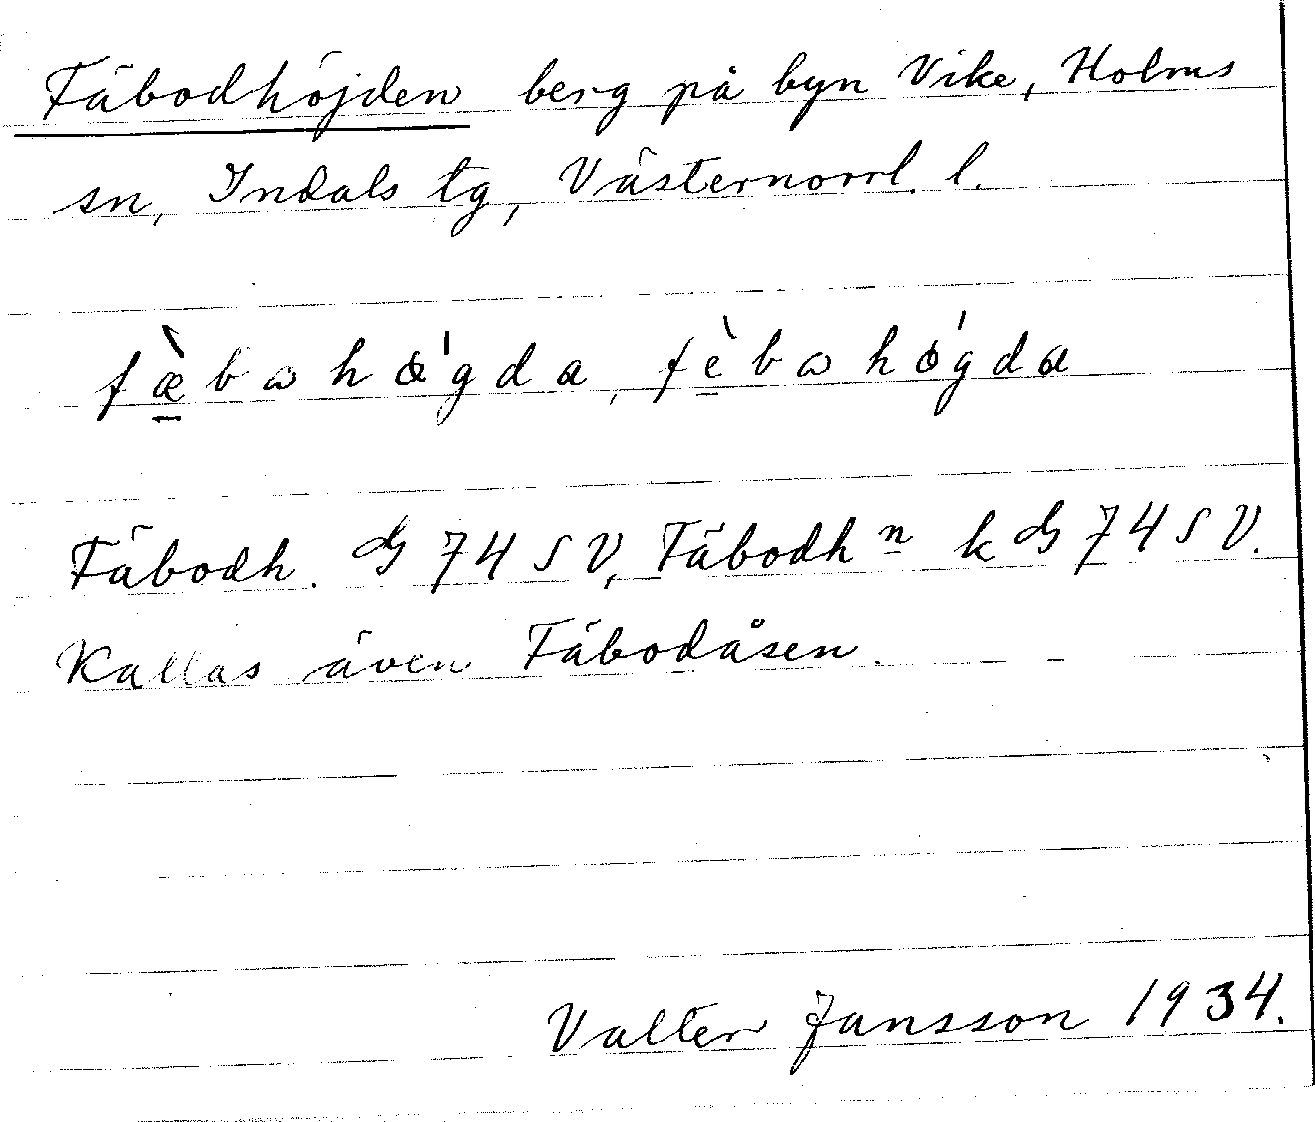 Fäbodhöjden berg på byn Vike, Holms
sn, Indals tg, Västernorrl. l.
fæ̀bɷhǿgda, fèbɷhǿgda
Fäbodh. G 74 SV, Fäbodhn k G 74 SV.
Kallas även Fäbodåsen.
Valter Jansson 1934.